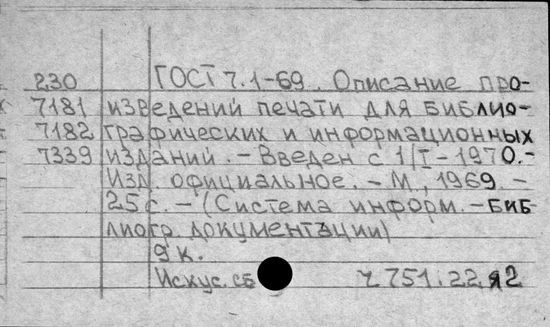 230 ГОСТ 7.1-69. Описание про-
7181 изведений печати для библио-
7182 графических и информационных
7339 изданий. - Введен с 1/I - 1970. -
Изд. официальное. - М., 1969 -
25 с. - (Система информ. - биб
лиогр. документации)
9 к.
Искус. сб Ч 751.22 я2